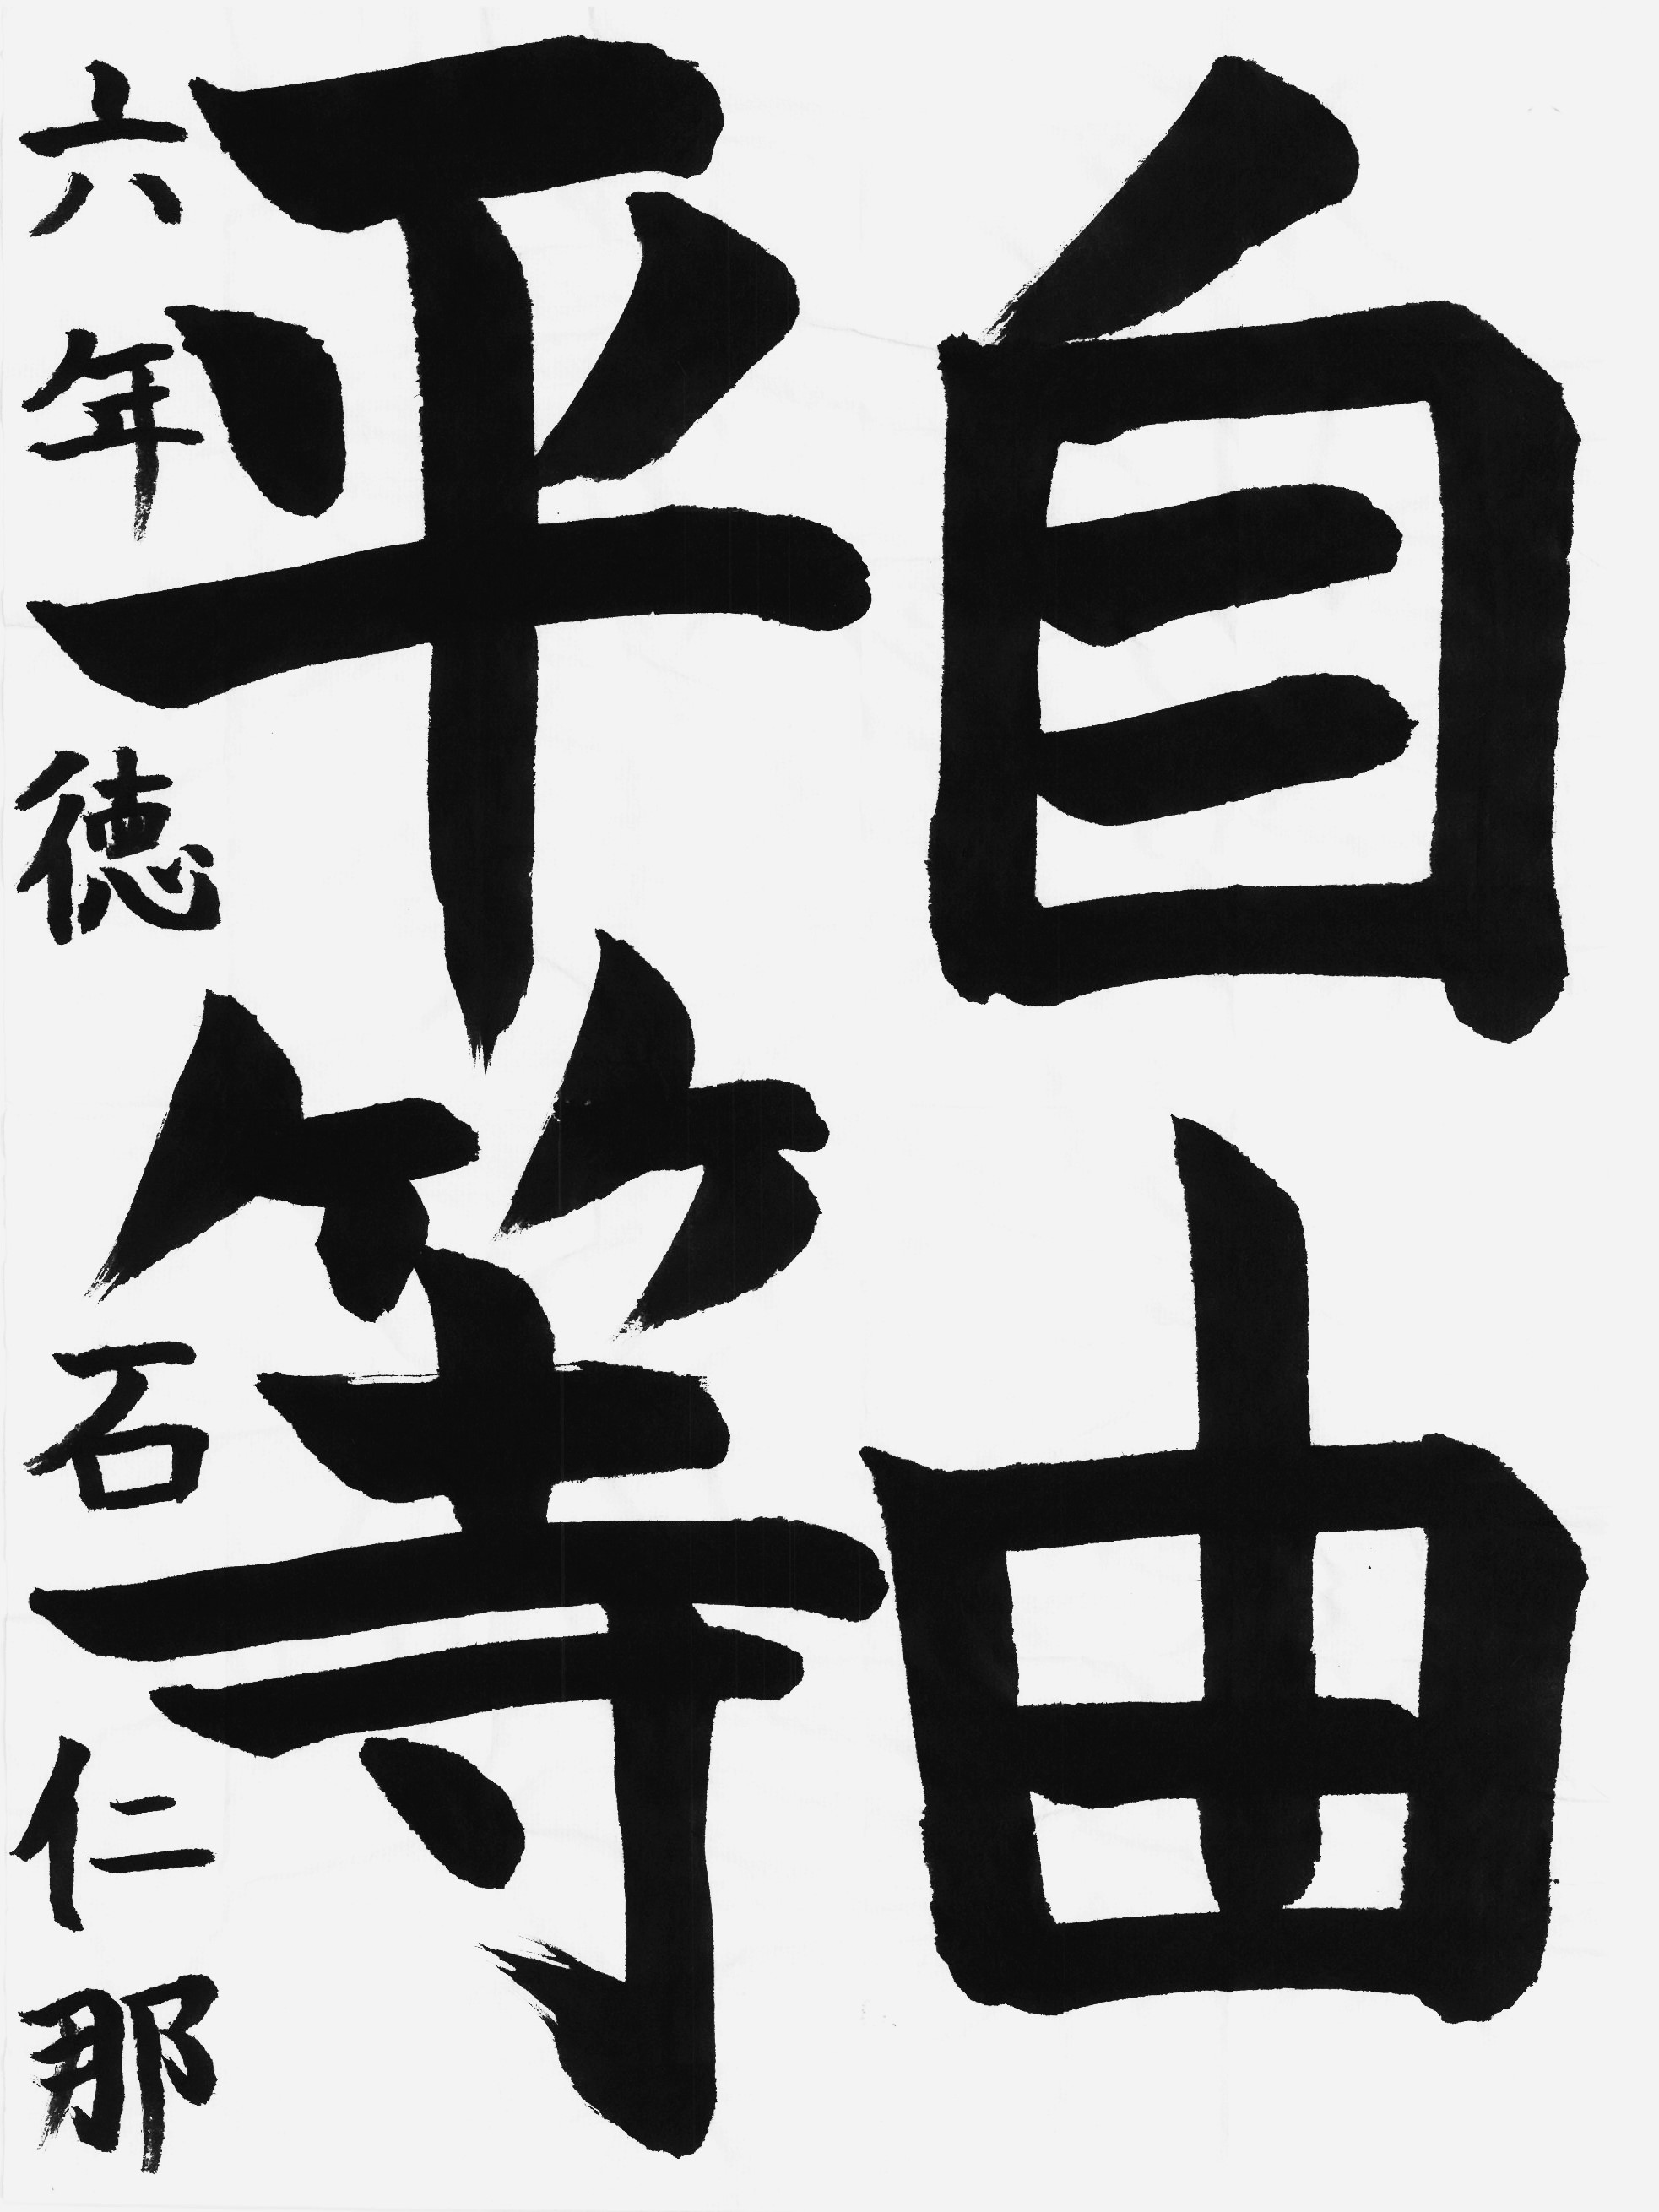 自由
平等
六年 徳石仁那